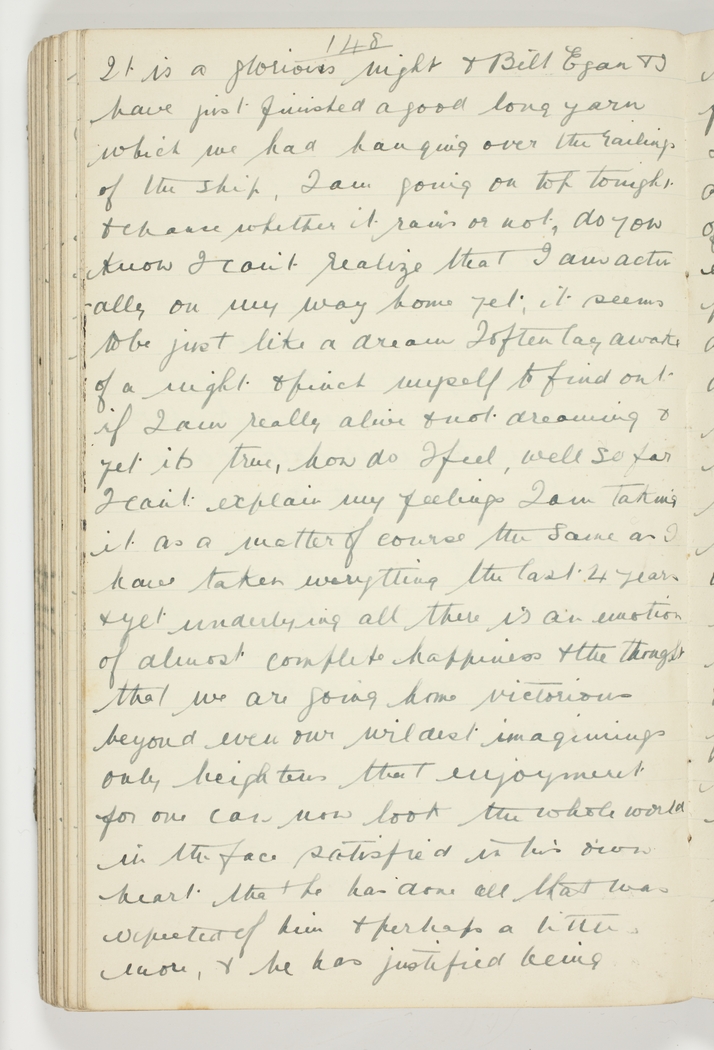 148
It is a glorious night & Bill Egan & I
have just finished a good long yarn
which we had hanging over the railings
of the ship, I am going on top tonight
& chance whether it rains or not, do you
know I can't realize that I am actu
ally on my way home yet, it seems
to be just like a dream I often lay awake
of a night & pinch myself to find out
if I am really alive & not dreaming &
yet its true, how do I feel, well so far
I can't explain my feelings I am taking
it as a matter of course the same as I
have taken everything the last 4 years
& yet underlying all there is an emotion
of almost complete happiness & the thought
that we are going home victorious
beyond even our wildest imaginings
only heightens that enjoyment
for one can now look the whole world
in the face satisfied in his own
heart that he has done all that was
expected of him & perhaps a little
more, & he has justified being